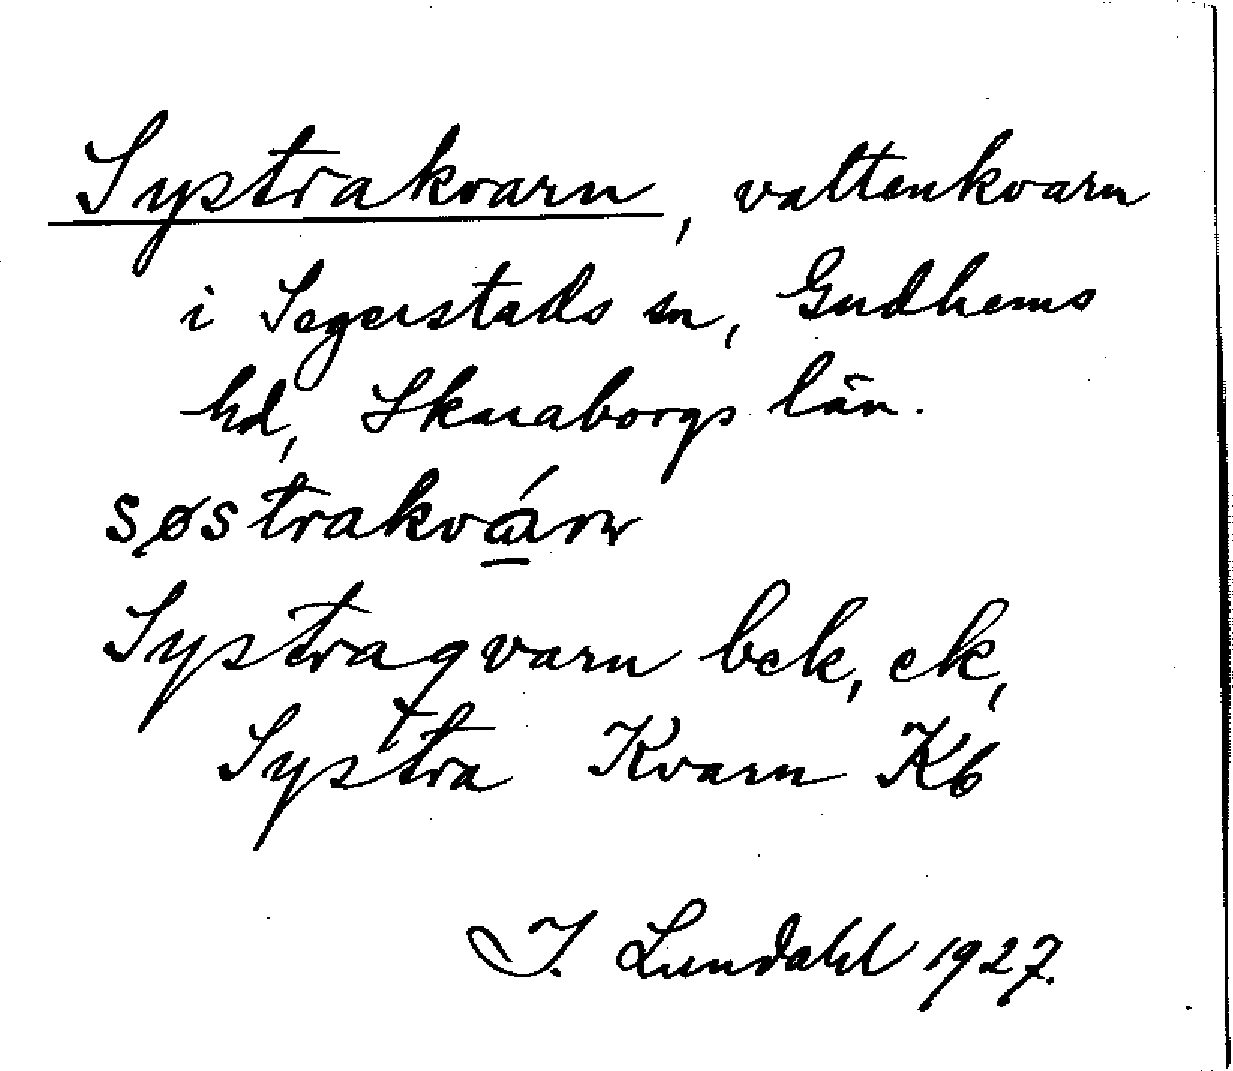 Systrakvarn, vattenkvarn
i Segerstads sn, Gudhems
hd, Skaraborgs län.
søstrakvá̱rn
Systraqvarn bek, ek,
Systra Kvarn Kb
I. Lundahl 1927.